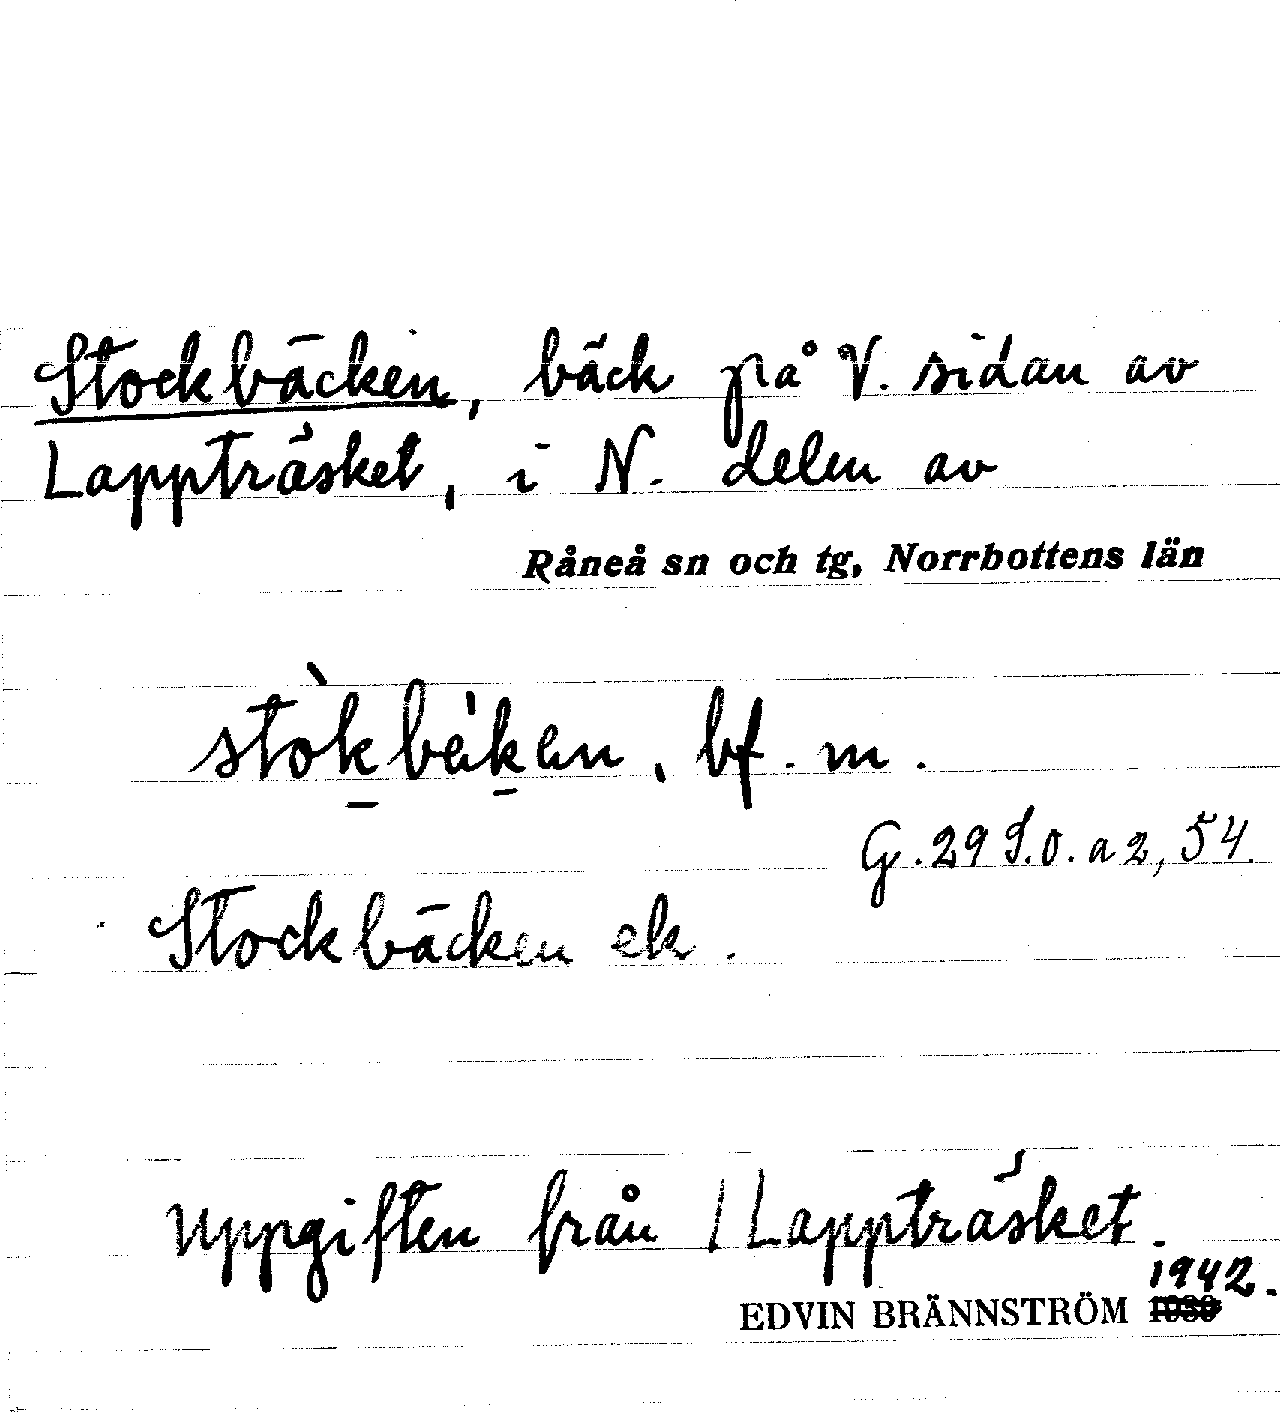 Stockbäcken, bäck på V. sidan av
Lappträsket, i N. delen av
Råneå sn och tg, Norrbottens län
stòkbèken, bf. m.
G. 29 S.o. a 2, 54.
Stockbäcken ek.
Uppgiften från / Lappträsket.
1942.
EDVIN BRÄNNSTRÖM 1939